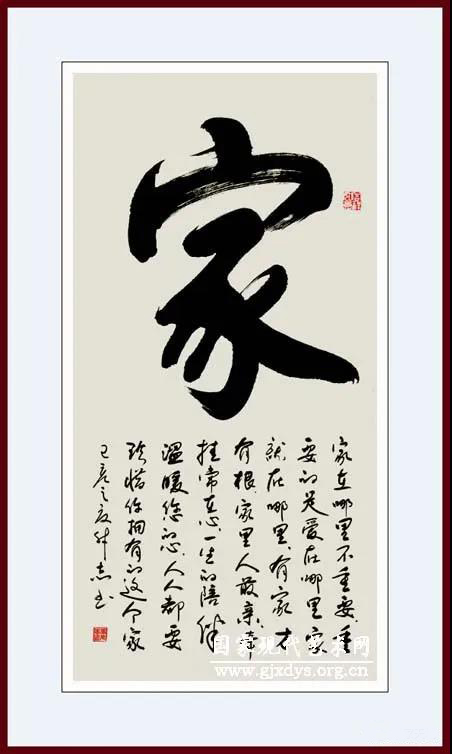 家
家在哪里不重要重
要的是爱在哪里家
就在哪里有家才
有根家里人最亲牵
挂常在心一生的陪伴
温暖您的心人人都要
珍惜你拥有的这个家
己亥之夏
国家现代艺术网
www.gjxdys.org.cn